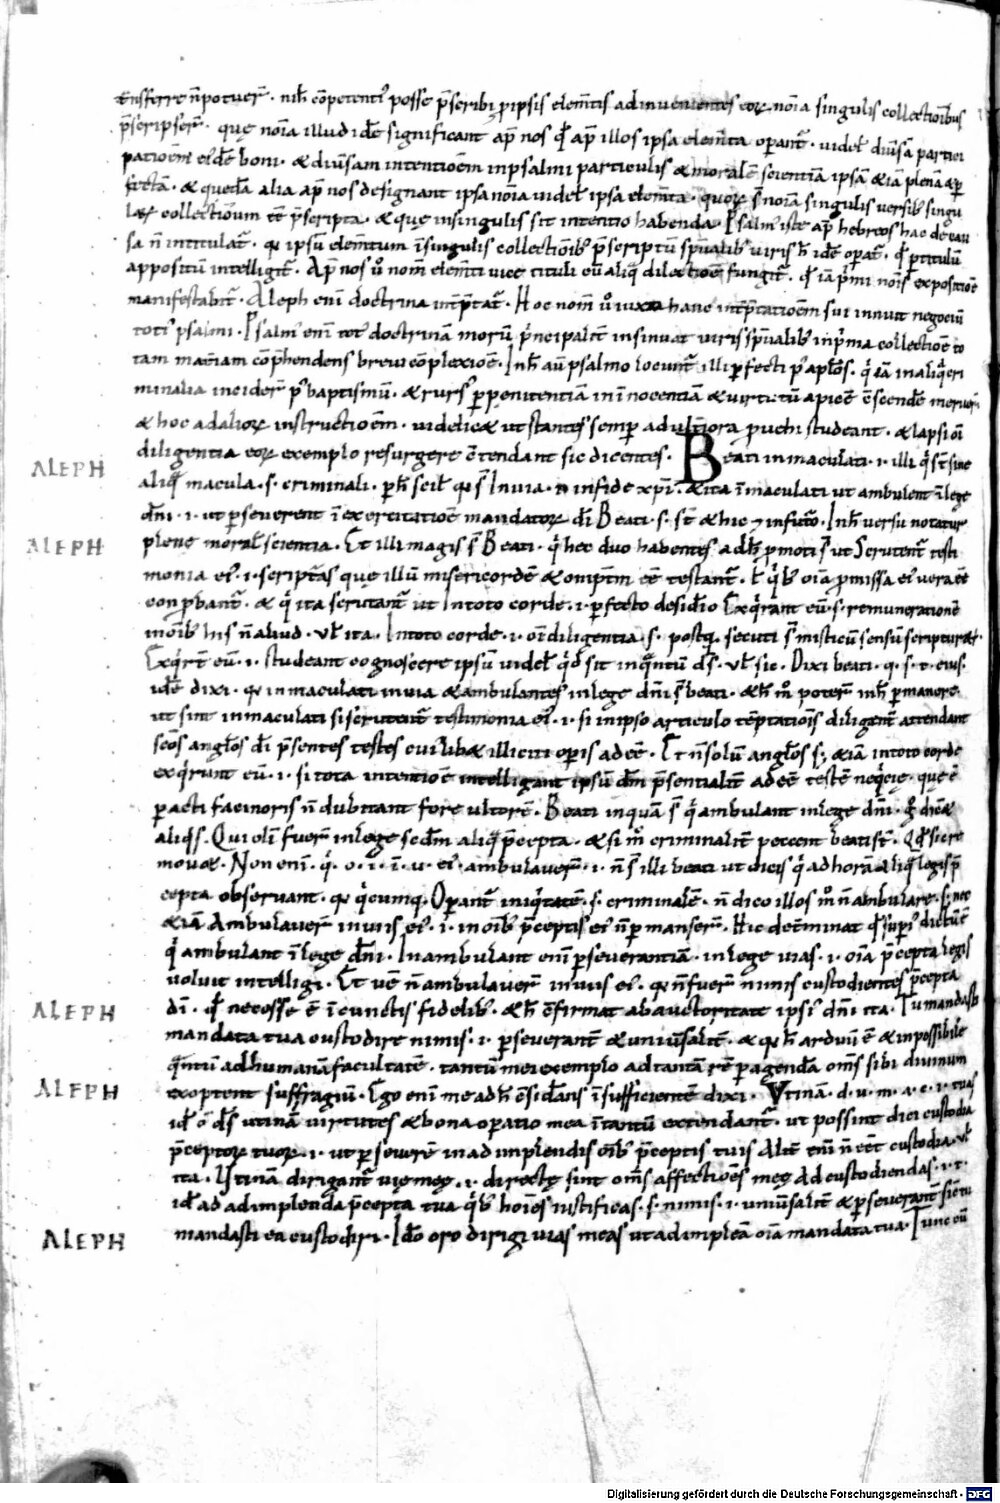 nsferre n̄ potuer̄. nih̄ cōpetenti posse p̄scribi p ipsis elem̄tis adinuenientes eoꝝ nōia singulis collectionibus
p̄scripser̄. que nōia illud idē significant ap̄ nos qd̄ ap̄ illos ipsa elem̄ta opant̄. uidel̄ diuīsā partici
patioēm eidē boni. & diuersam intentioēm inpsalmi particulis & moralē scientiā ipsā &iā plenā & per
fectā. & quedā alia ap̄ nos designant ipsa nōia uidel̄ ipsa elem̄ta. quoꝝ nōia singulis uersib; singu
laꝝ collectionum eē p̄scripta. & que insingulis sit intentio habenda. Psalm̄ iste ap̄ hebreos hac de cau
sa n̄ intitulat̄. qr ipsū elem̄tum īsingulis collectionib; p̄scriptū sp̄ualib; uiris h̄ idē opat̄. qd̄ ptitulū
appositū intelligit̄. Ap̄ nos ū nom̄ elem̄ti uice tituli eū aliq̄ dilectioē fungit̄. qd̄ iā p̄mi nōis expositiōe
manifestabit̄. Aleph eni doctrina intp̄tat̄. Hoc nom̄ ū iuxta hanc intp̄tatioēm sui innuit negociū
toti psalmi. Psalm̄ eni tot̄ doctrinā morū p̄ncipalit̄ insinuat uiris sp̄ualib; inp̄ma collectioē to
tam mat̄iam cōp̄hendens breui cōplexioē. Inh̄ aū psalmo locunt̄ illi pfecti p̄ aplos. q̄ iā inaliq̄ cri
minalia incider̄ p̄ baptismū. & rurs̄ p penitentiā in īnocentiā & uirtutū apicē cscende meruer̄
& hoc adalioꝝ instructioēm. uidelic& ut stantes semp adulteriora puehi studeant. & lapsi oī
diligentia eoꝝ exemplo resurgere ctendant sic dicentes. Beati inmaculati. i. illi q̄ st̄ sine
ALEPH aliq̄ macula. s. criminali. p h̄ scil̄ qr s̄ Inuia. in fide xpi. & ita īmaculati ut ambulent īlege
dn̄i. i. ut pseuerent ī exercitatioē mandatoꝝ dī Beati. s. st̄ & hic ⁊ infuto. Inh̄ uersu notatur
ALEPH plene moral̄ scientia. Et illi magis s̄ Beati. q̄ hec duo habentes adh̄ pmoti s̄ ut Scrutent̄ testi
monia ei'. i. script̄as que illū misericordē & omptm̄ eē testant̄. t̄ q̄b; oīa pmissa ei' uera eē
conpbant̄. & q̄ ita scrutant̄ ut Intoto corde. i. pfecto desidio Exq̄rant eū. s. remunerationē
inoīb; his n̄ aliud. ul̄ ita. Intoto corde. i. oī diligentia. s. postq̄ secuti s̄ misticū sensū scripturaꝝ.
Exq̄rt̄ eū. i. studeant cognoscere ipsū uidel̄ q̄d sit inq̄ntū d̄s. ul̄ sic. Dixi beati. q. s. t. eius.
idē dixi. qr inmaculati inuia & ambulantes inlege dn̄i s̄ beati. & h̄ m̄ poter̄ inh̄ pmanere
ut sint inmaculati si scrutent̄ testimonia ei'. i. si inipso articulo tēptatiois diligent̄ attendant
scōs angl̄os dī p̄sentes testes cuilib& illiciti opis adeē. Et n̄ solū angl̄os s; &iā intoto corde
exq̄runt eū. i. si tota intentioē intelligant ipsū dm̄ p̄sentialit̄ adeē testē neq̄cie. que ē
pacti facinoris n̄ dubitant fore ultorē. Beati inquā s̄ q̄ ambulant inlege dn̄i.
aliq̄s. Qui olī fuer̄ inlege secdm̄ aliq̄ p̄cepta. & si m̄ criminalit̄ peccent beati st̄. Qd̄ sic re
mou&. Non eni. q̄. o. i. ī. u. ei'. ambulauer̄. i. n̄ s̄ illi beati ut dicis q̄ ad horā aliq̄ legis p̄
cepta obseruant. qr q̄cumq; Opant̄ iniq̄tatē. s. criminalē. n̄ dico illos m̄ n̄ ambulare. s; nec
&iā Ambulauer̄ inuiis ei'. i. inoīb; p̄ceptis ei' n̄ pmanser̄. Hic det̄minat qd̄ supi' dictū ē
q̄ ambulant īlege dn̄i. In ambulant eni pseuerantiā. inlege uias. i. oīa p̄cepta legis
uoluit intelligi. Et ue n̄ ambulauer̄ inuiis ei'. qr n̄ fuer̄ nimis custodientes p̄cepta
ALEPH dī. qd̄ necesse ē ī cunctis fidelib;. & h̄ cfirmat ab auctoritate ipsi' dn̄i ita. Tu mandasti
mandata tua custodire nimis. i. pseuerant̄ & uniuersalit̄. & qr h̄ arduū ē & inpossibile
q̄ntū adhumanā facultatē. tantū mei exemplo ad tantā rē pagendā oms̄ sibi diuinum
ALEPH exoptent suffragiū. Ego eni me adh̄ csid̄ans īsufficientē dixi. Vtinā. d. u. m. a. c. i. tuas
id̄ ō d̄s utinā uirtutes & bona operatio mea ītantū extendant̄. ut possint dici custodia
p̄ceptoꝝ tuoꝝ. i. ut pseuerē inad implendis oīb; p̄ceptis tuis Alit̄ eni n̄ eēt custodia. ul̄
ita. Vtinā dirigant̄ uie mee. i. directe sint oms̄ affectioēs mee Ad custodiendas. i. t.
id̄ ad adimplenda p̄cepta tua q̄b; hoīes iustificas. s. nimis. i. uniuersalit̄ & pseuerant̄ sic tu
ALEPH mandasti ea custodiri. Ido oro dirigi uias meas ut adimpleā oīa mandata tua. Tunc cū